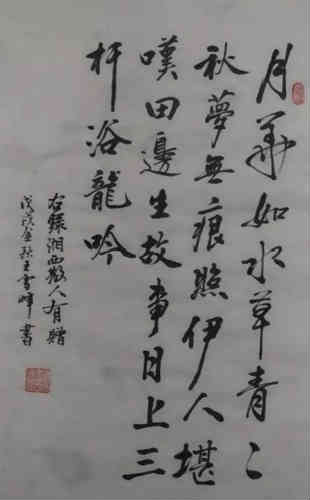 月華如水草青〻
秋夢無痕照伊人堪
嘆田邊生故事日上三
杆浴龍吟
右録湘西散人有贈
戊戌
書